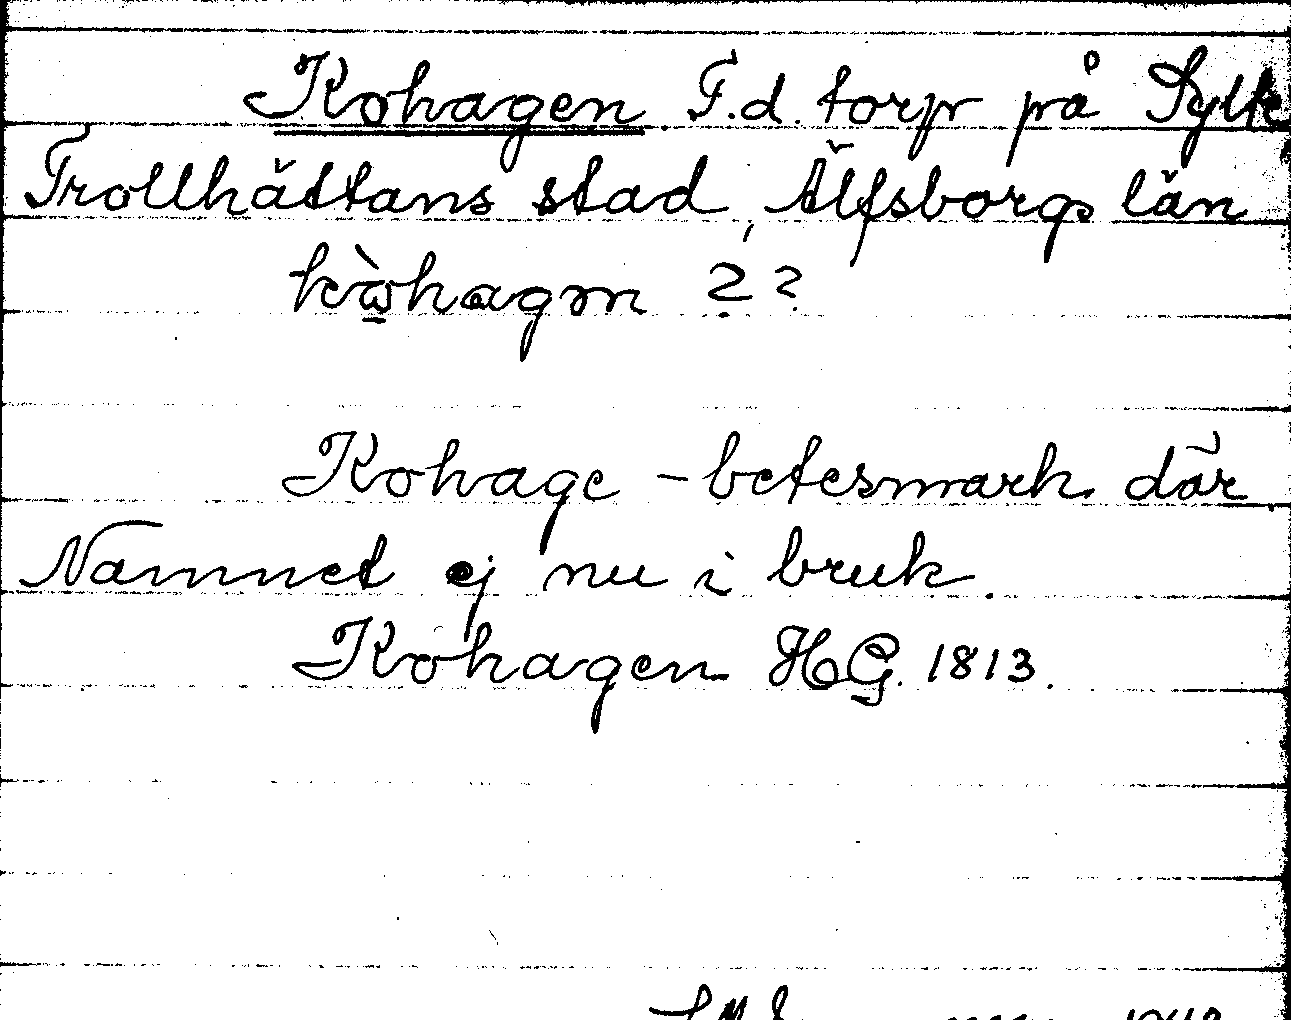 Kohagen F.d. torp på Sylte
Trollhättans stad, Älfsborgs län
kẁhagən ??
Kohage - betesmark där
Namnet ej nu i bruk.
Kohagen HG. 1813.